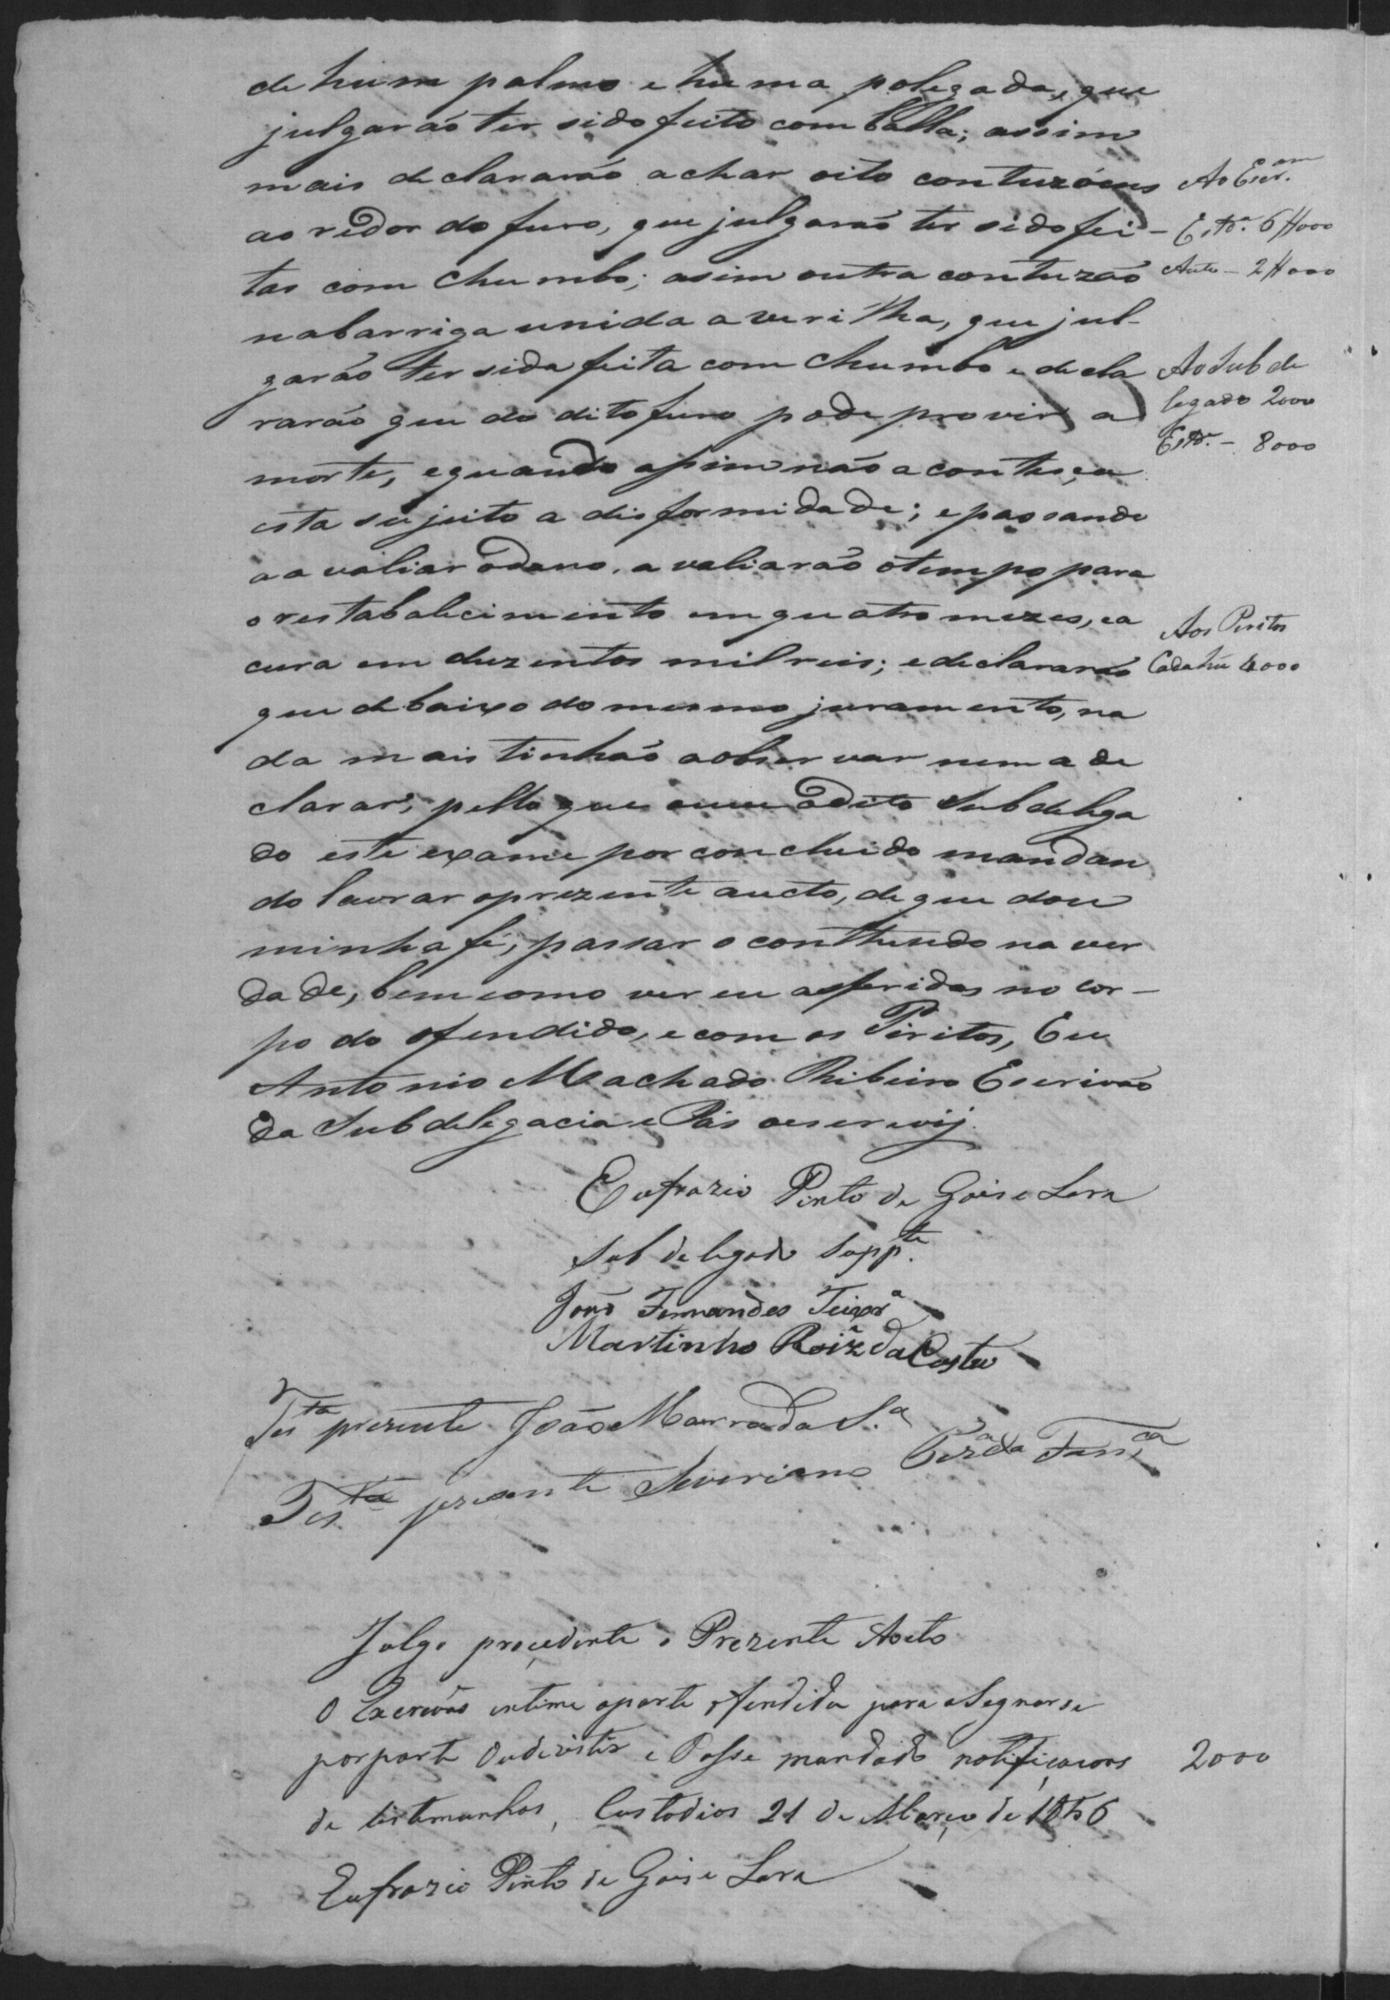 de hum palmo e huma polegada, que
julgarão ter sido feito com balla; assim
mais declararão achar oito contuzóens
ao redor do furo, que julgarão ter sido fei-
tas com chumbo; asim outra contuzão
na barriga unida a verilha, que jul-
garão ter sida feita com chumbo e decla
rarão que do dito furo pode provir a
morte, e quando assim não aconteça
esta sujeito a disformidade; e passando
a avaliar o dano, avaliarão o tempo para
o restabalecimento em quatro mezes, e a
cura em duzentos mil reis; e declararão
que debaixo do mesmo juramento, na
da mais tinhão a observar nem a de
clarar; pello que ouve o dito Subdelega
do este exame por concluido mandan
do lavrar o prezente aucto, de que dou
minha fé, passar o contheudo na ver
dade, bem como ver eu as feridas no cor-
po do ofendido, e com os Piritos, Eu
Antonio Machado Ribeiro Escrivão
da Subdelegacia e Pás o escrevij.
Ao Escr.am
Estd.a 6#000
Auto - 2#000
Ao Subde
legado 2000
Estd.a - 8000
Aos Peritos
Cada hũ 4000
Eufrazio Pinto de Gois e Lara
Subdelegado Supp.te
João Fernandes Teixr.a
Martinho Roiz da Costa
Test.a prezente João Marra da S.a
Test.a prezente Severiano Perz.a da Fans.ca
Julgo procedente o Prezente Aoto
O Escrivão intime a parte ofendida para aSegnarse
por parte e Passe mandado notificacoens
de testemunhas, Custodios 21 de Março de 1856
2000
Eufrazio Pinto de Gois e Lara